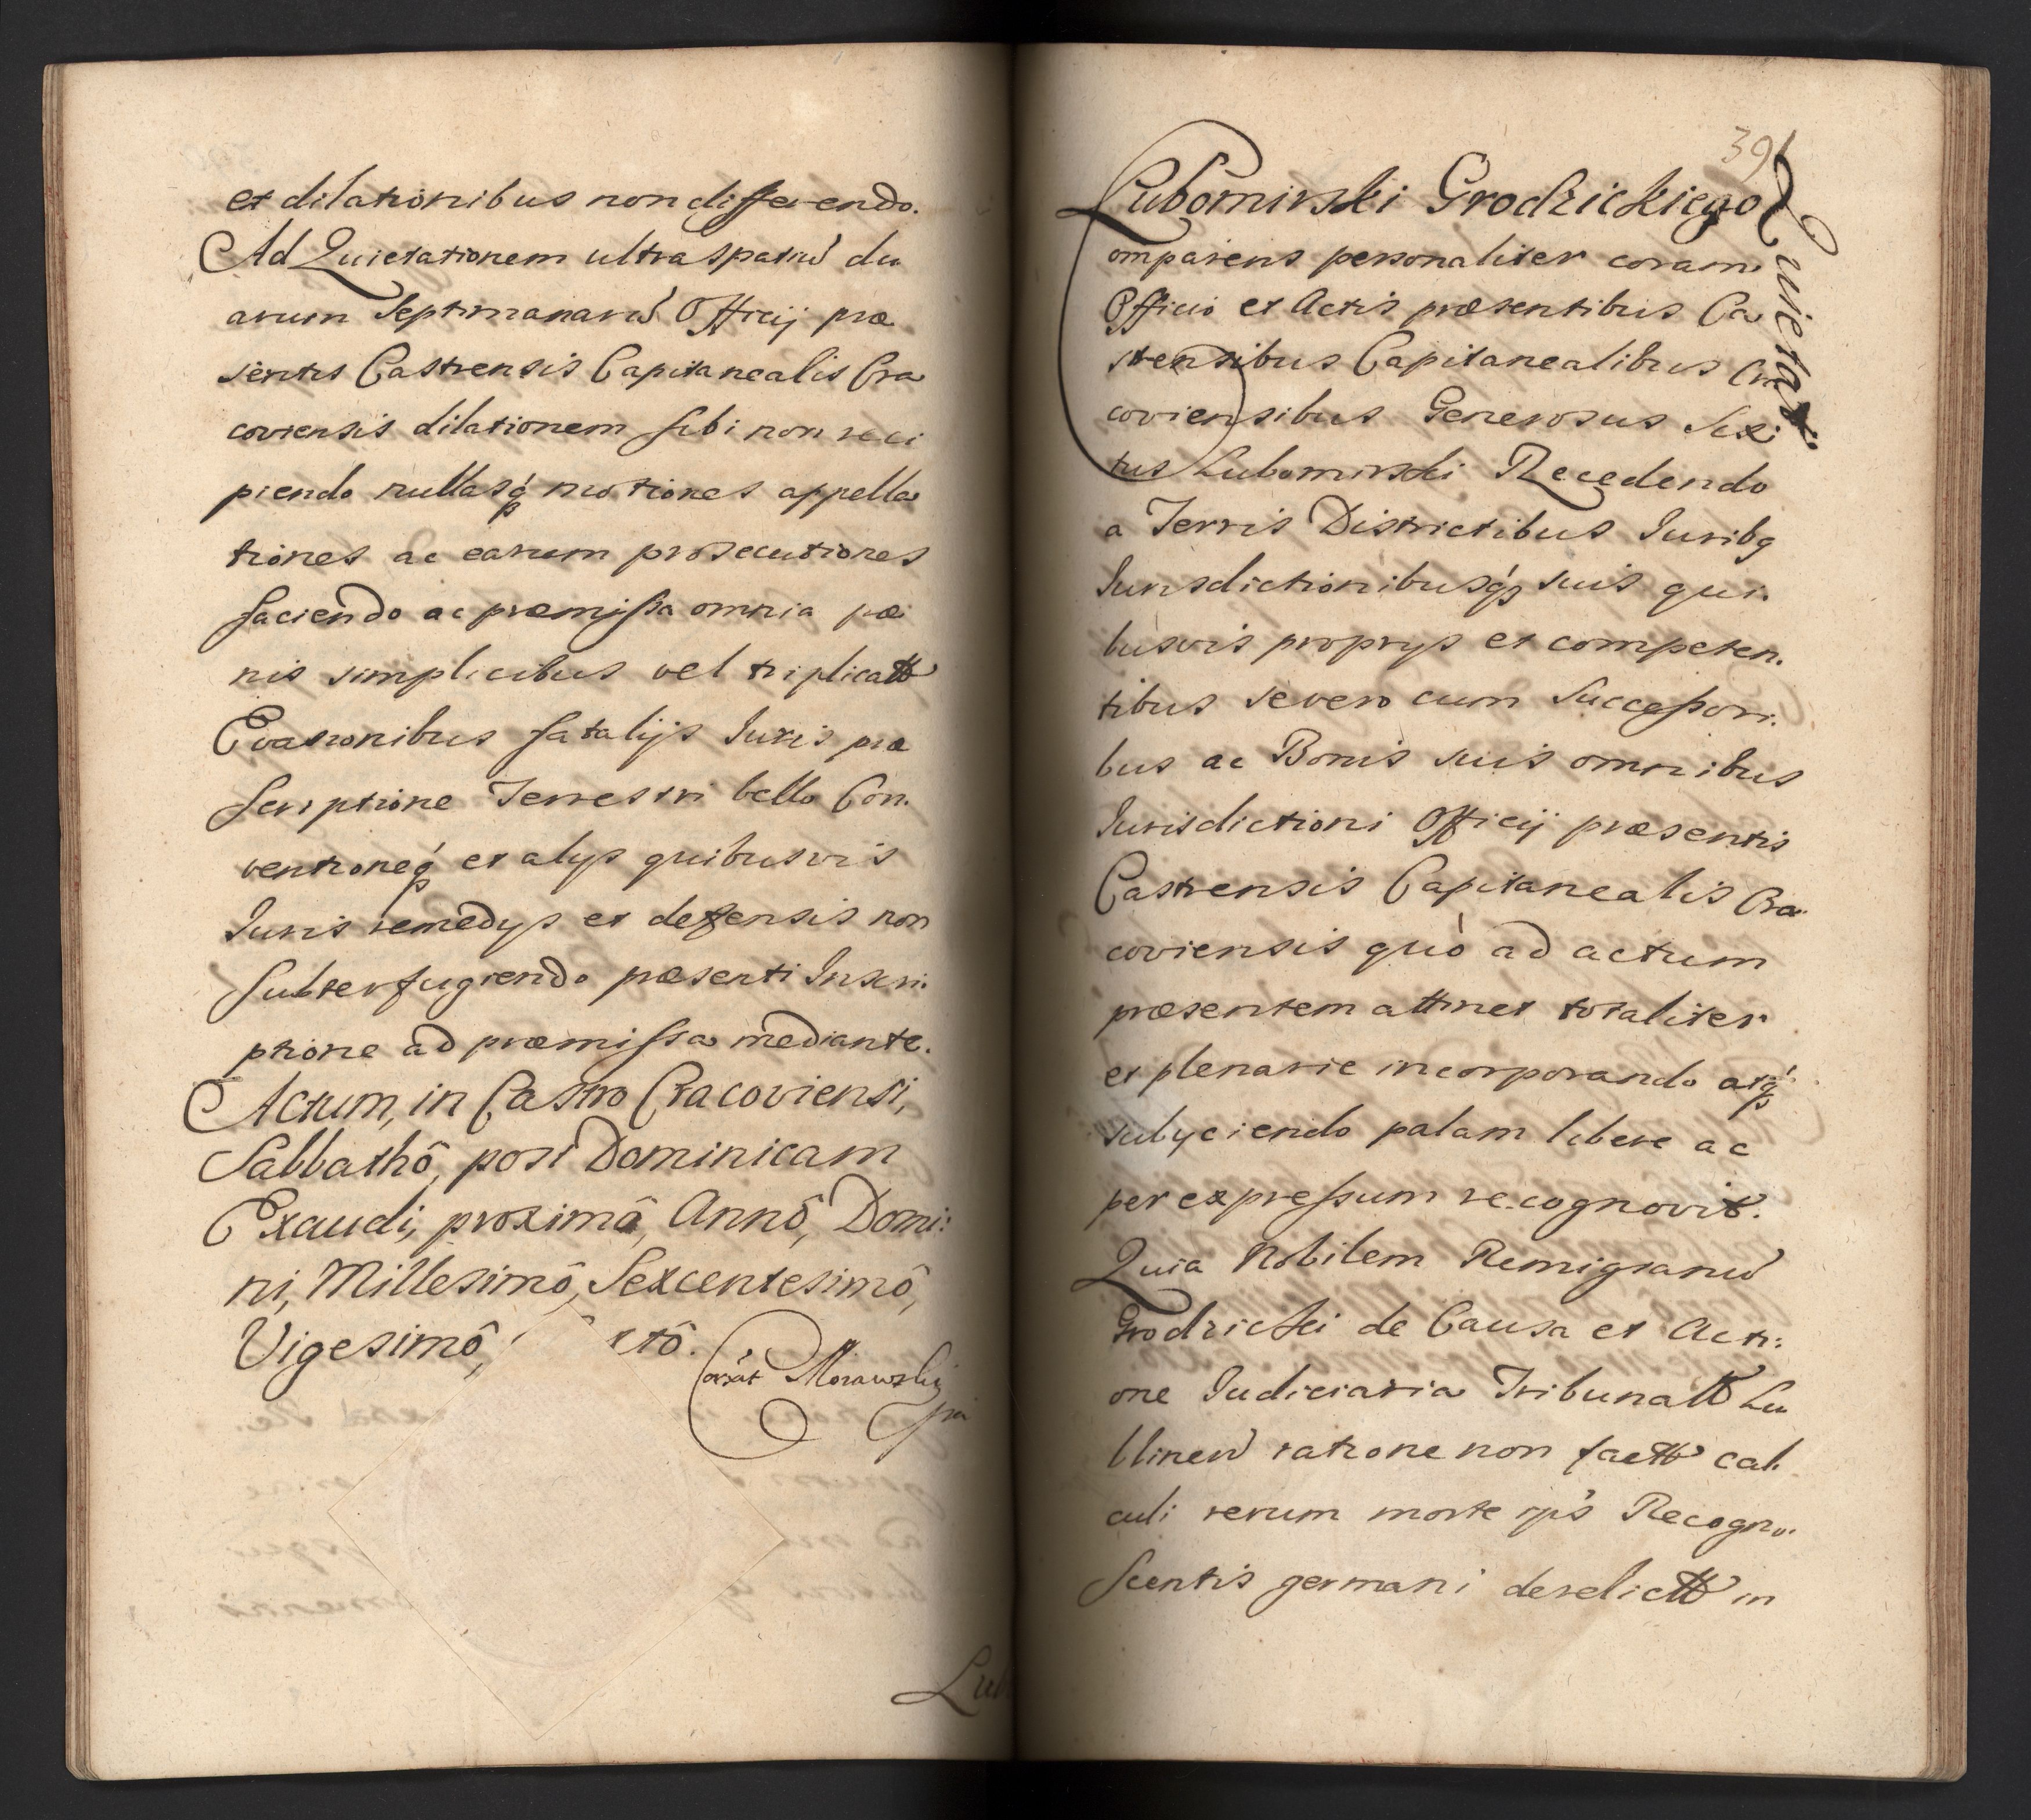 et dilationibus non differendo.
Ad Quietationem ultra spatiũ du
arum Septimanarũ Officij præ
sentis Castrensis Capitanealis Cra
coviensis dilationem sibi non reci
piendo nullasq́ motiones appella
tiones ac earum prosecutiones
faciendo ac præmissa omnia pæ
nis simplicibus vel triplicatt
Evasionibus fatalijs Iuris præ
scriptione Terrestri bello Con.
ventioneq́ et alys quibusvis
Iuris remedys et defensis non
subterfugiendo præsenti Inscri.
ptione ad præmissa mediante.
Actum, in Castro Cracoviensi,
Sabbathô, post Dominicam
Exaudi, proximâ, Annô, Domi:
ni, Millesimô, Sexcentesimô,
Vigesimô, xtô.
Morawsky
Lub
391
Lubomirski Grodzickiego
Quietat:
omparens personaliter coram
Officio et Actis præsentibus Ca
strensibus Capitanealibus Cra
coviensibus Generosus Sixi
tus Lubomirski Recedendo
a Terris Districtibus Iuribq
Iurisdictionibusq́ suis qui.
busvis proprys et competen.
tibus severo cum Successori.
bus ac Bonis suis omnibus
Iurisdictioni Officij præsentis
Castrensis Capitanealis Cra.
coviensis quò ad actum
præsentem attinet totaliter
et plenarie incorporando atq́
subyciendo palam libere ac
per expressum recognovit.
Quia Nobilem Remigianũ
Grodzicki de Causa et Acti:
one Iudiciaria Tribunatt Lu
blineñ ratione non factt cal.
culi rerum morte ips Recogno.
scentis germani derelictt in